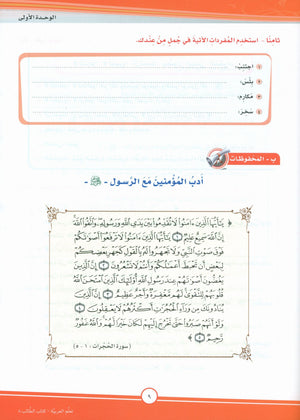 الوحدة الأولى
ثامنًا - استخدم المفردات الآتية في جُملٍ من عندك.
١ اجتنب:
٢ بئس:
٣ مكارم:
٤ سخر:
ب - المحفوظات
أدبُ المؤمنينَ معَ الرَّسول - ﷺ -
﴿ يَا أَيُّهَا الَّذِينَ ءَامَنُوا لَا تُقَدِّمُوا بَيْنَ يَدَيِ اللَّهِ وَرَسُولِهِ وَاتَّقُوا اللَّهَ
إِنَّ اللَّهَ سَمِيعٌ عَلِيمٌ ۝١ يَا أَيُّهَا الَّذِينَ ءَامَنُوا لَا تَرْفَعُوا أَصْوَاتَكُمْ
فَوْقَ صَوْتِ النَّبِيِّ وَلَا تَجْهَرُوا لَهُ بِالْقَوْلِ كَجَهْرِ بَعْضِكُمْ
لِبَعْضٍ أَن تَحْبَطَ أَعْمَالُكُمْ وَأَنتُمْ لَا تَشْعُرُونَ ۝٢ إِنَّ الَّذِينَ
يَغُضُّونَ أَصْوَاتَهُمْ عِندَ رَسُولِ اللَّهِ أُولَئِكَ الَّذِينَ امْتَحَنَ اللَّهُ
قُلُوبَهُمْ لِلتَّقْوَى لَهُم مَّغْفِرَةٌ وَأَجْرٌ عَظِيمٌ ۝٣ إِنَّ الَّذِينَ
يُنَادُونَكَ مِن وَرَاءِ الْحُجُرَاتِ أَكْثَرُهُمْ لَا يَعْقِلُونَ ۝٤
وَلَوْ أَنَّهُمْ صَبَرُوا حَتَّى تَخْرُجَ إِلَيْهِمْ لَكَانَ خَيْرًا لَّهُمْ وَاللَّهُ غَفُورٌ
رَّحِيمٌ ۝٥ ﴾
(سورة الحجرات ١ - ٥)
٩